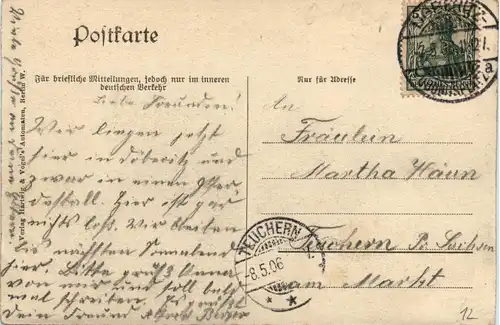 Postkarte
Für briefliche Mitteilungen, jedoch nur im inneren
deutschen Verkehr
Nur für Adresse
Liebe Freundin!
Wir liegen jetzt
hier in Döberitz und
zwar in einen Pfer-
destall. Hier ist gar
nichts los. Wir bleiben
bis nächsten Sonnabend
hier. Bitte grüß Anna
von mir und soll bald
mal schreiben. Es grüßt
Dein Freund Alfred
An
Fräulein
Martha Häun
Teuchern Pr. Sachsen
am Markt
TEUCHERN
8.5.06
* *
Verlag Hartwig & Vogel's Automaten, Berlin W.
12